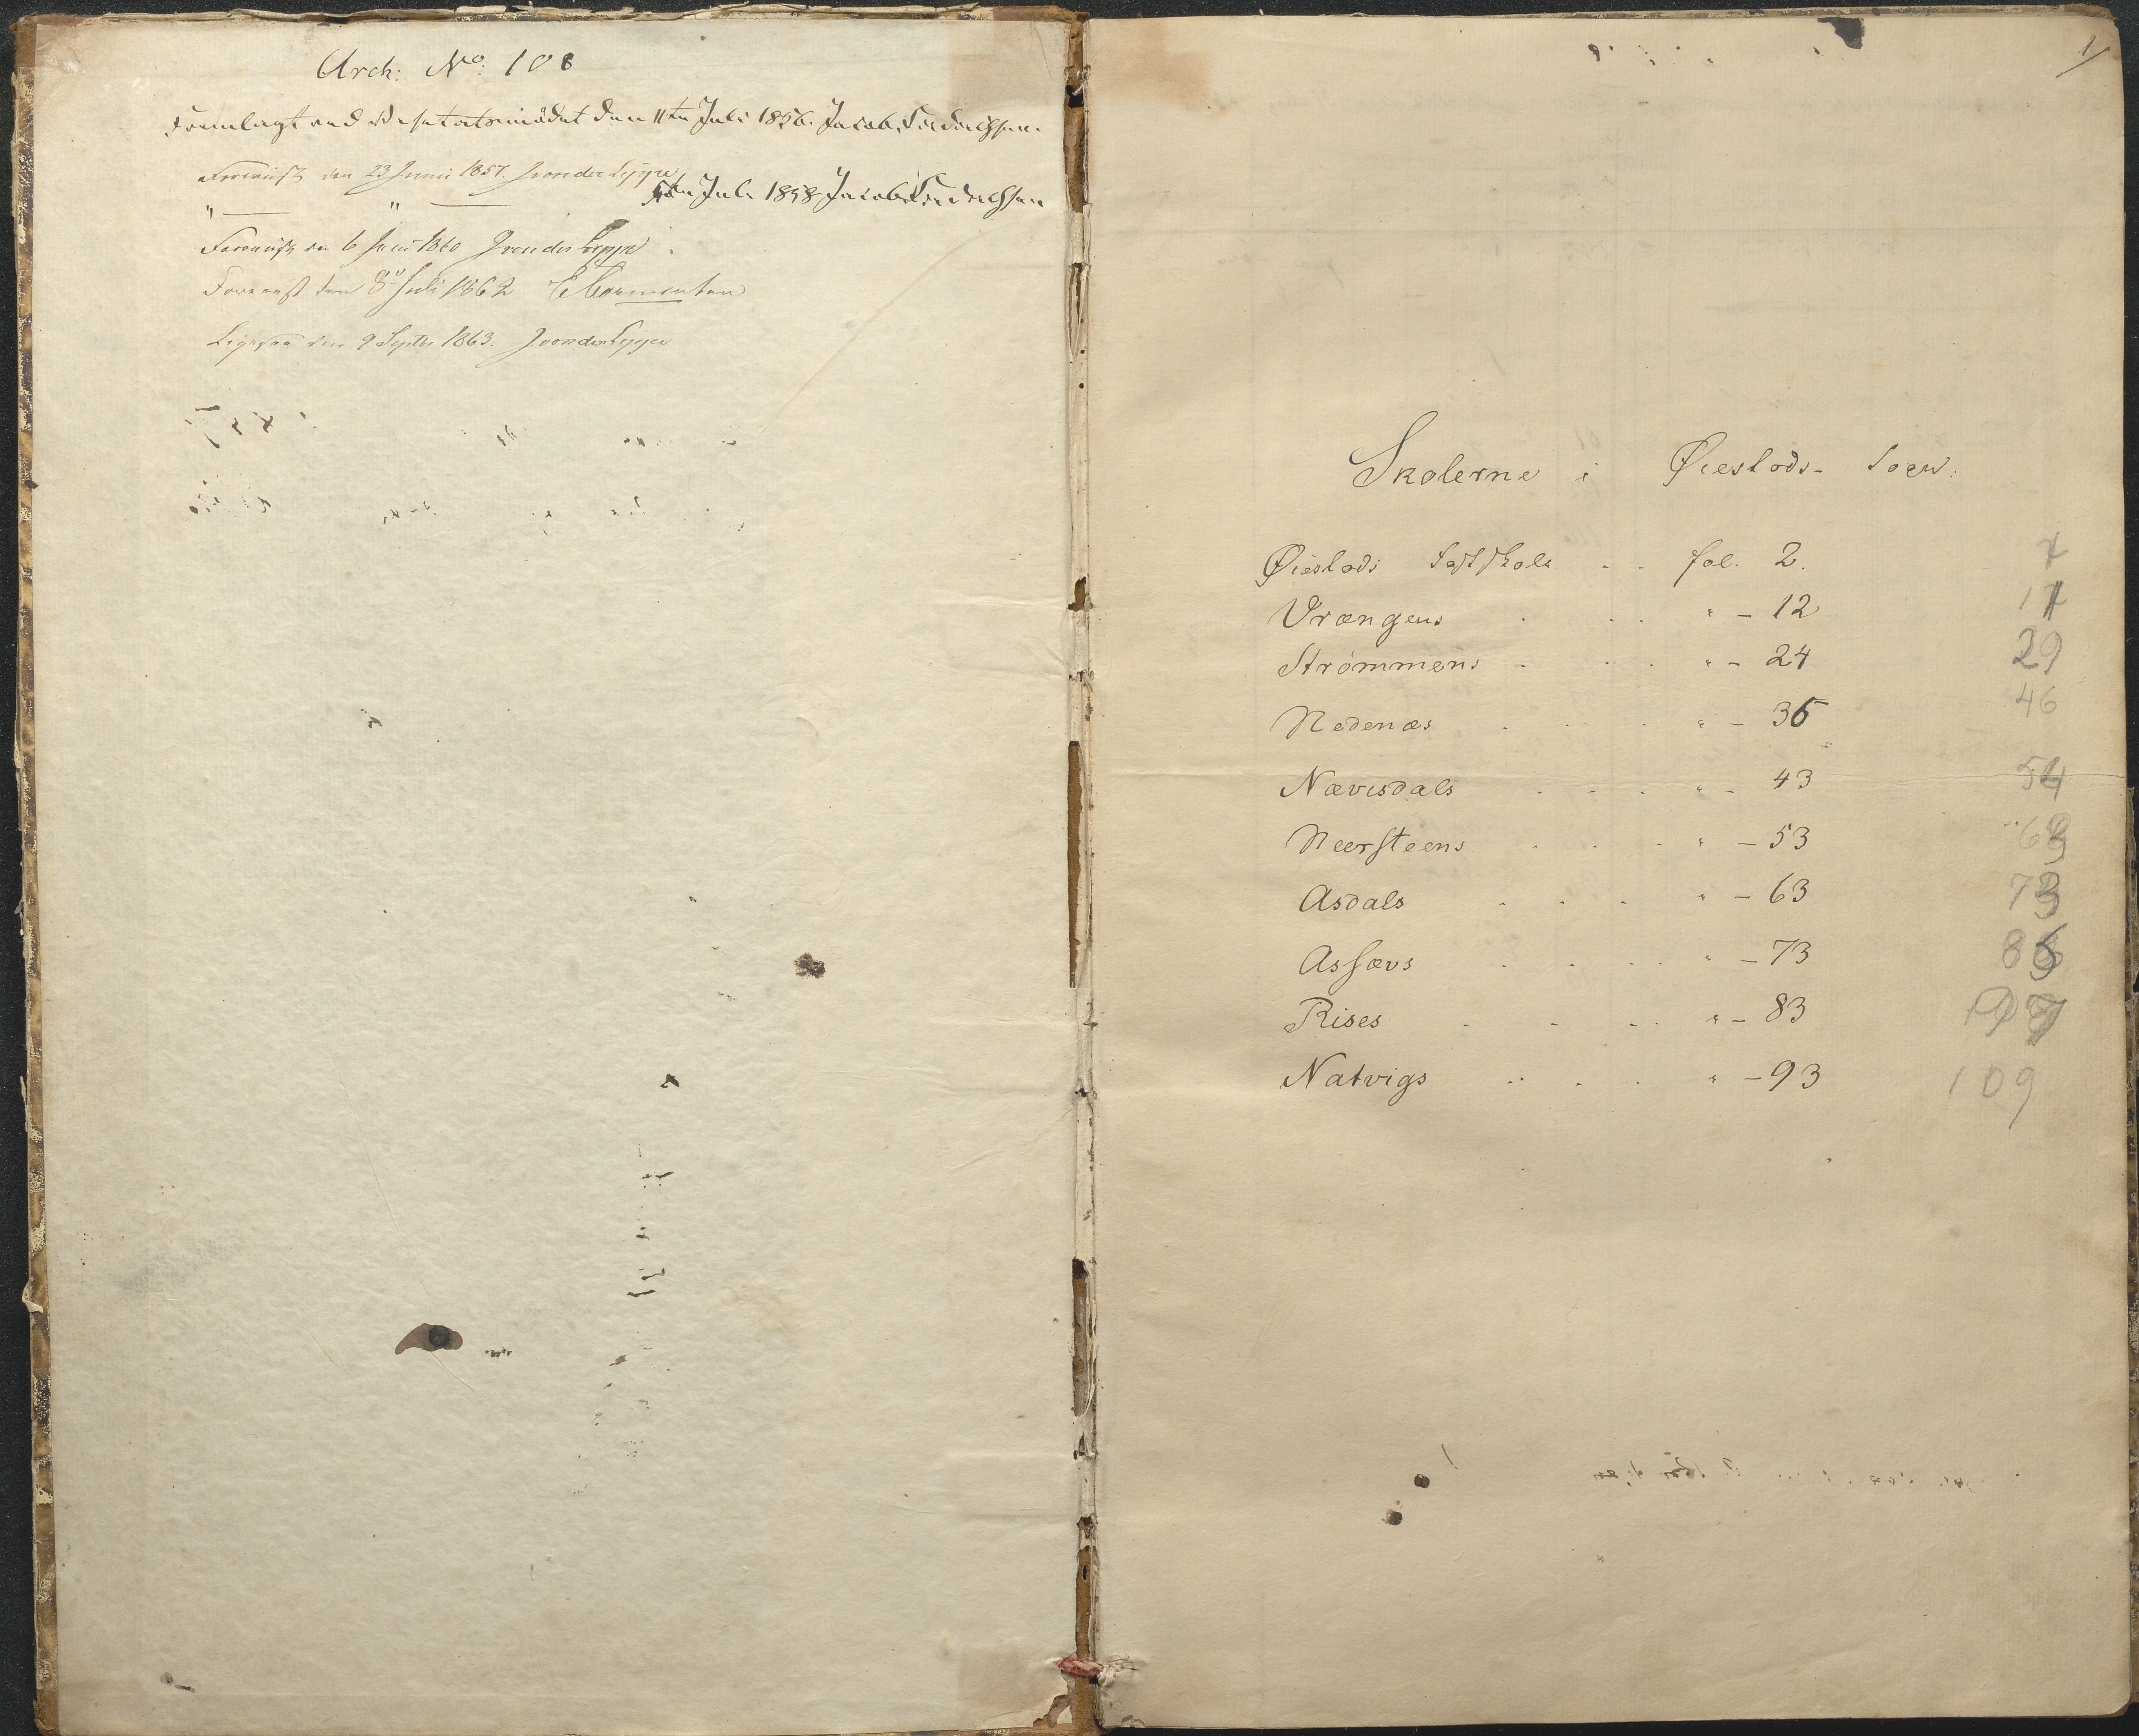 Arch: No. 108
Fremlagt ved Visitatsmødet den 11te Juli 1856. Jacob
Foreviist den 23 Juni 1857. J von der Lippe
" — " — 5te Juli 1858 Jacob
Foreviist den 6 Juni 1860 J von der Lippe
Foreviist den 8de Juli 1862
Ligesaa den 9 Septbr 1863. J von der Lippe
1
Skolerne i Øiestads- Sogn:
Øiestads Fastskole . . fol. 2. 7
Vrængens . . . " - 12 17
Strømmens . . . " - 24 29
Nedenæs . . . " - 35 46
Nævisdals . . . " - 43 54
Neersteens . . . " - 53 63
Asdals . . . " - 63 73
Assævs . . . " - 73 85
Rises . . . " - 83 97
Natvigs . . . " - 93 109